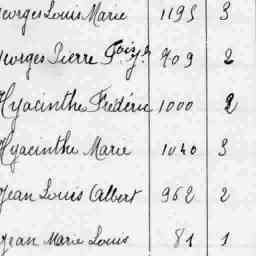 eorges Louis Marie 1195 3
eorges Pierre 909 2
Hyacinthe Frédéric 1000 2
Hyacinthe Marie 1040 3
Jean Louis Albert 962 2
Jean Marie Louis 81 1